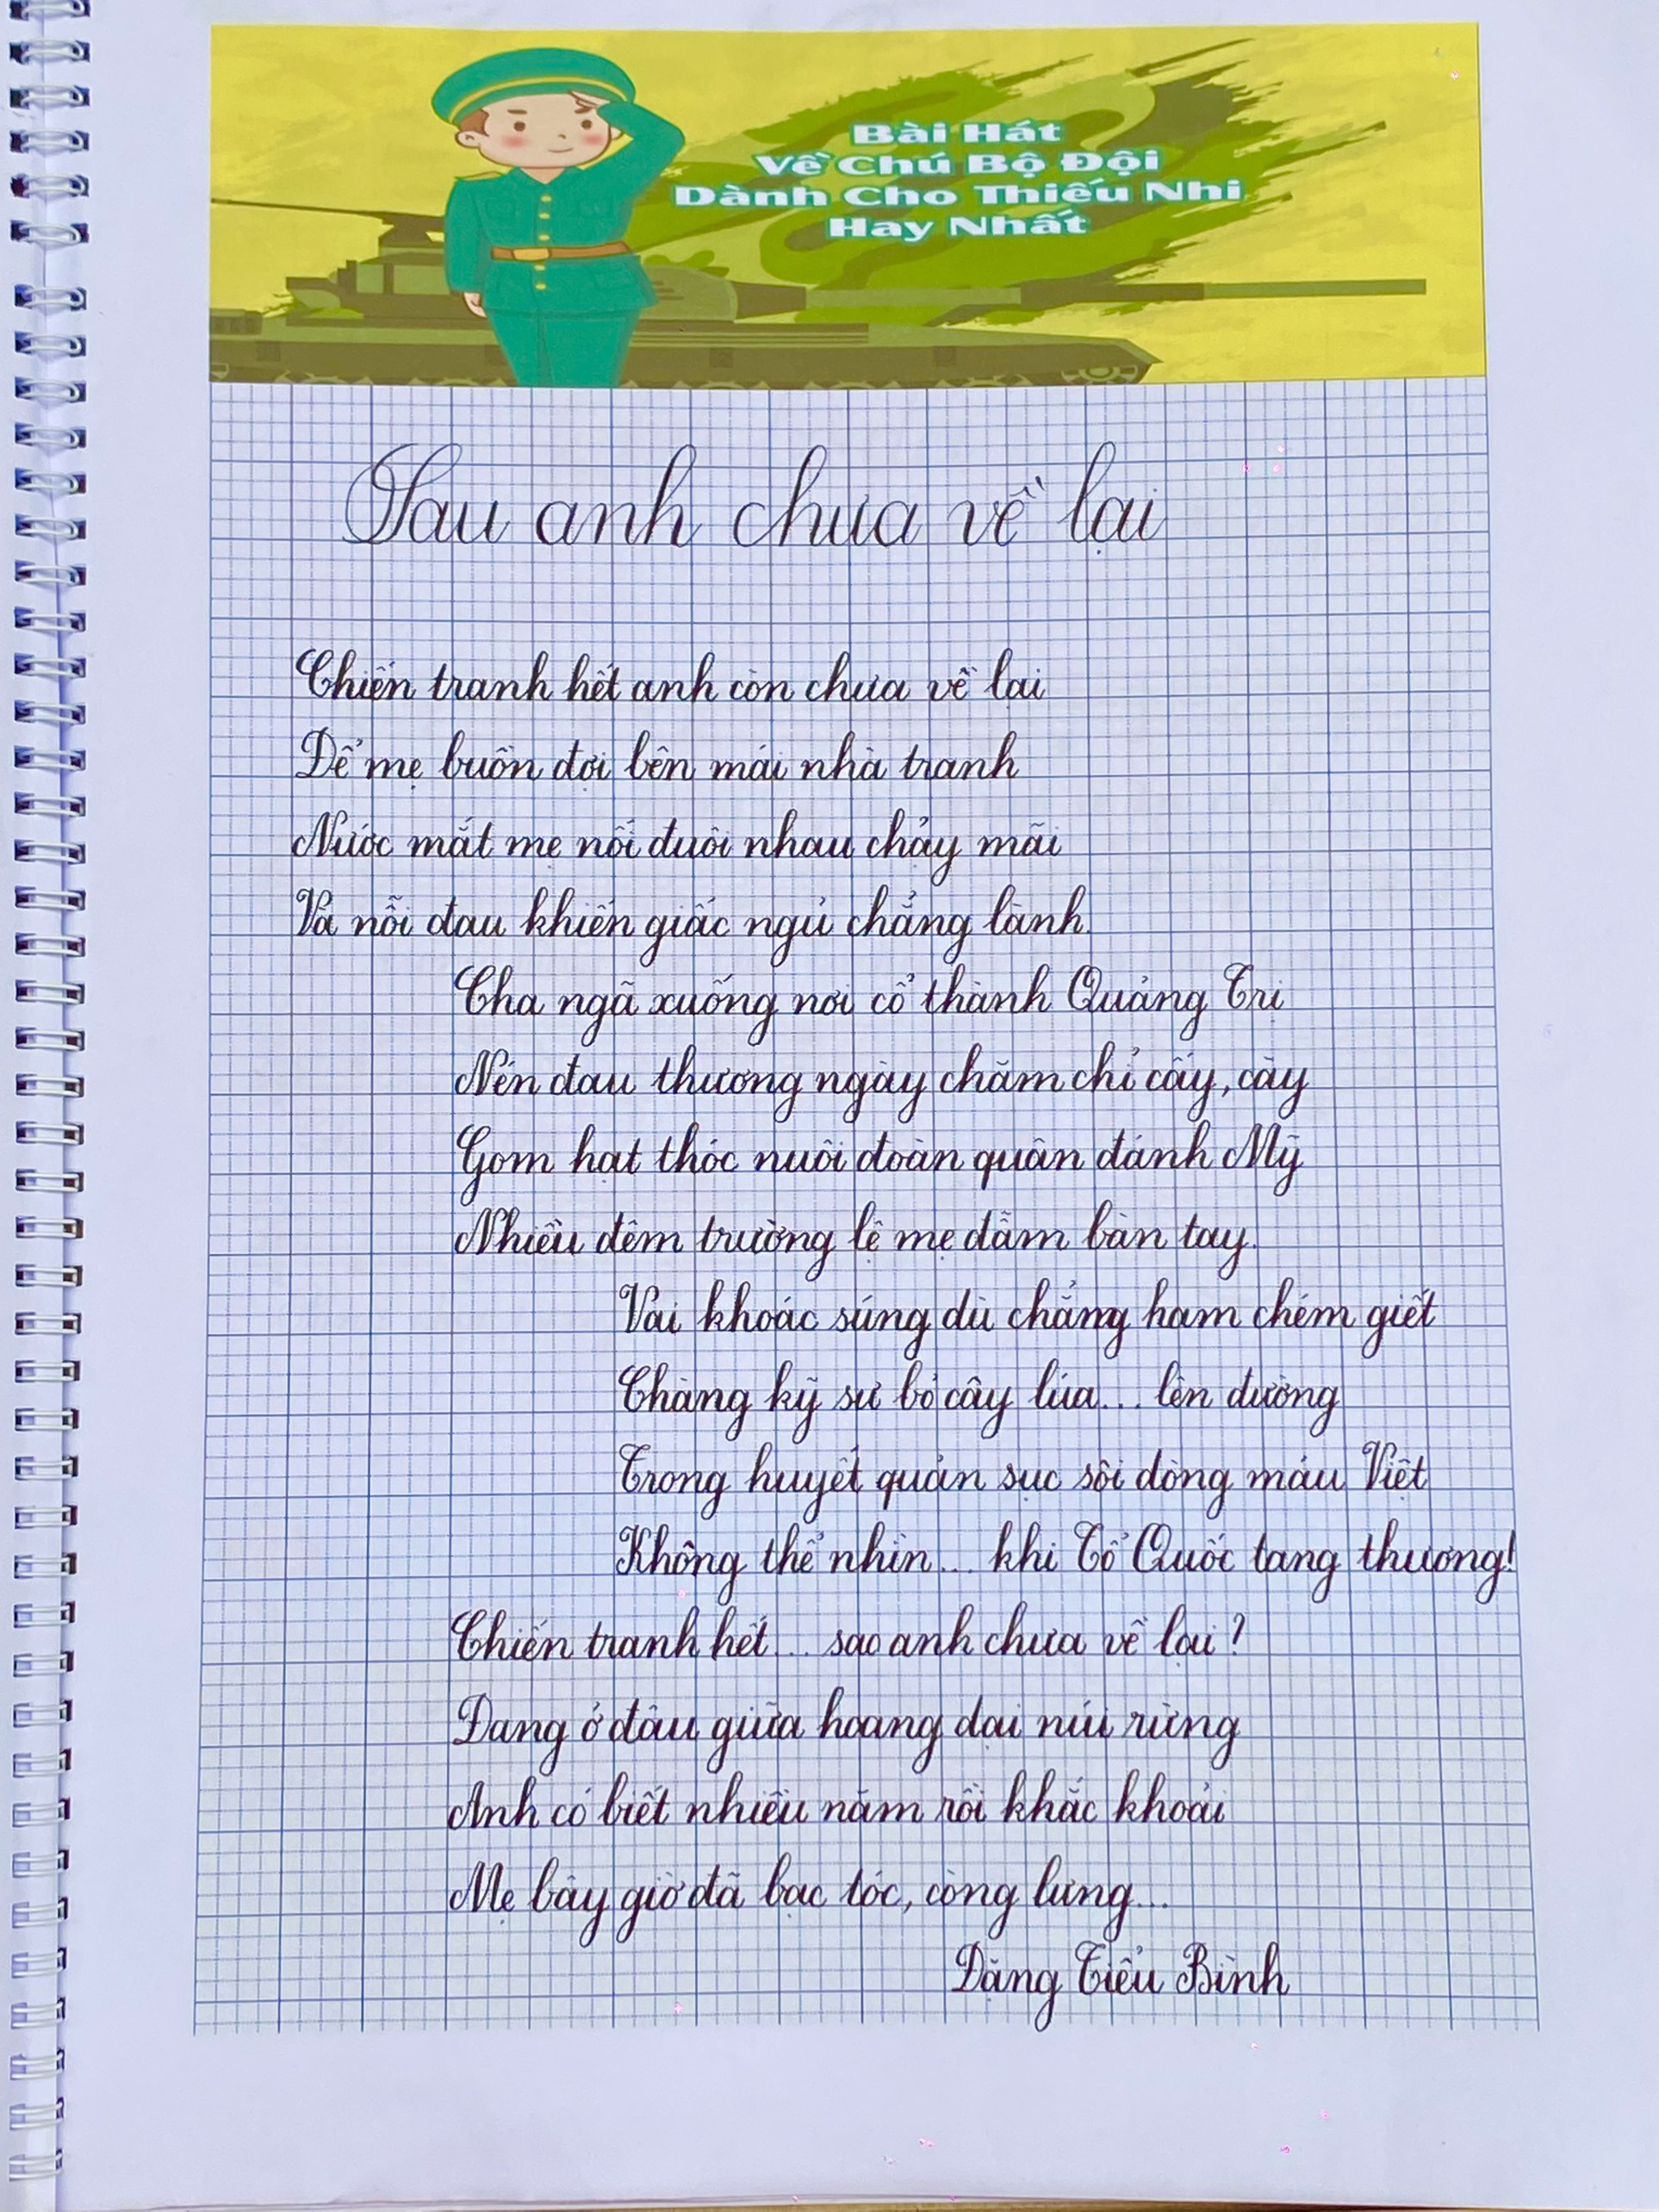 Bài Hát
Về Chú Bộ Đội
Dành Cho Thiếu Nhi
Hay Nhất
Sau anh chưa về lại
Chiến tranh hết anh còn chưa về lại
Để mẹ buồn đợi bên mái nhà tranh
Nước mắt mẹ nối đuôi nhau chảy mãi
Và nỗi đau khiến giấc ngủ chẳng lành.
Cha ngã xuống nơi cổ thành Quảng Trị
Nén đau thương ngày chăm chỉ cấy, cày
Gom hạt thóc nuôi đoàn quân đánh Mỹ
Nhiều đêm trường lệ mẹ đẫm bàn tay.
Vai khoác súng dù chẳng ham chém giết
Chàng kỹ sư bỏ cây lúa... lên đường
Trong huyết quản sục sôi dòng máu Việt
Không thể nhìn... khi Tổ Quốc tang thương!
Chiến tranh hết... sao anh chưa về lại?
Đang ở đâu giữa hoang dại núi rừng
Anh có biết nhiều năm rồi khắc khoải
Mẹ bây giờ đã bạc tóc, còng lưng...
Đặng Tiểu Bình